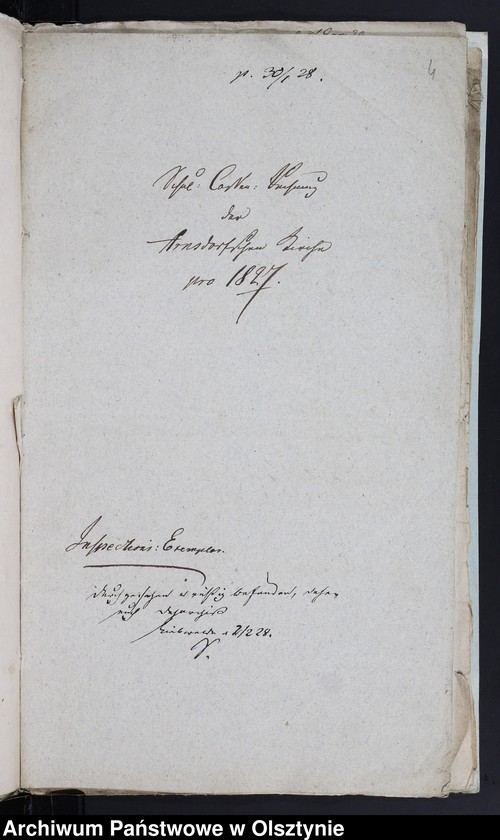 p. 30/1 28.
4
Schul: Cassen: Rechnung
der
Arnsdorfschen Kirche
pro 1827.
Inspections: Exemplar.
durchgesehen u richtig befunden, daher
auch
d 2/2 28.
S.
Archiwum Państwowe w Olsztynie